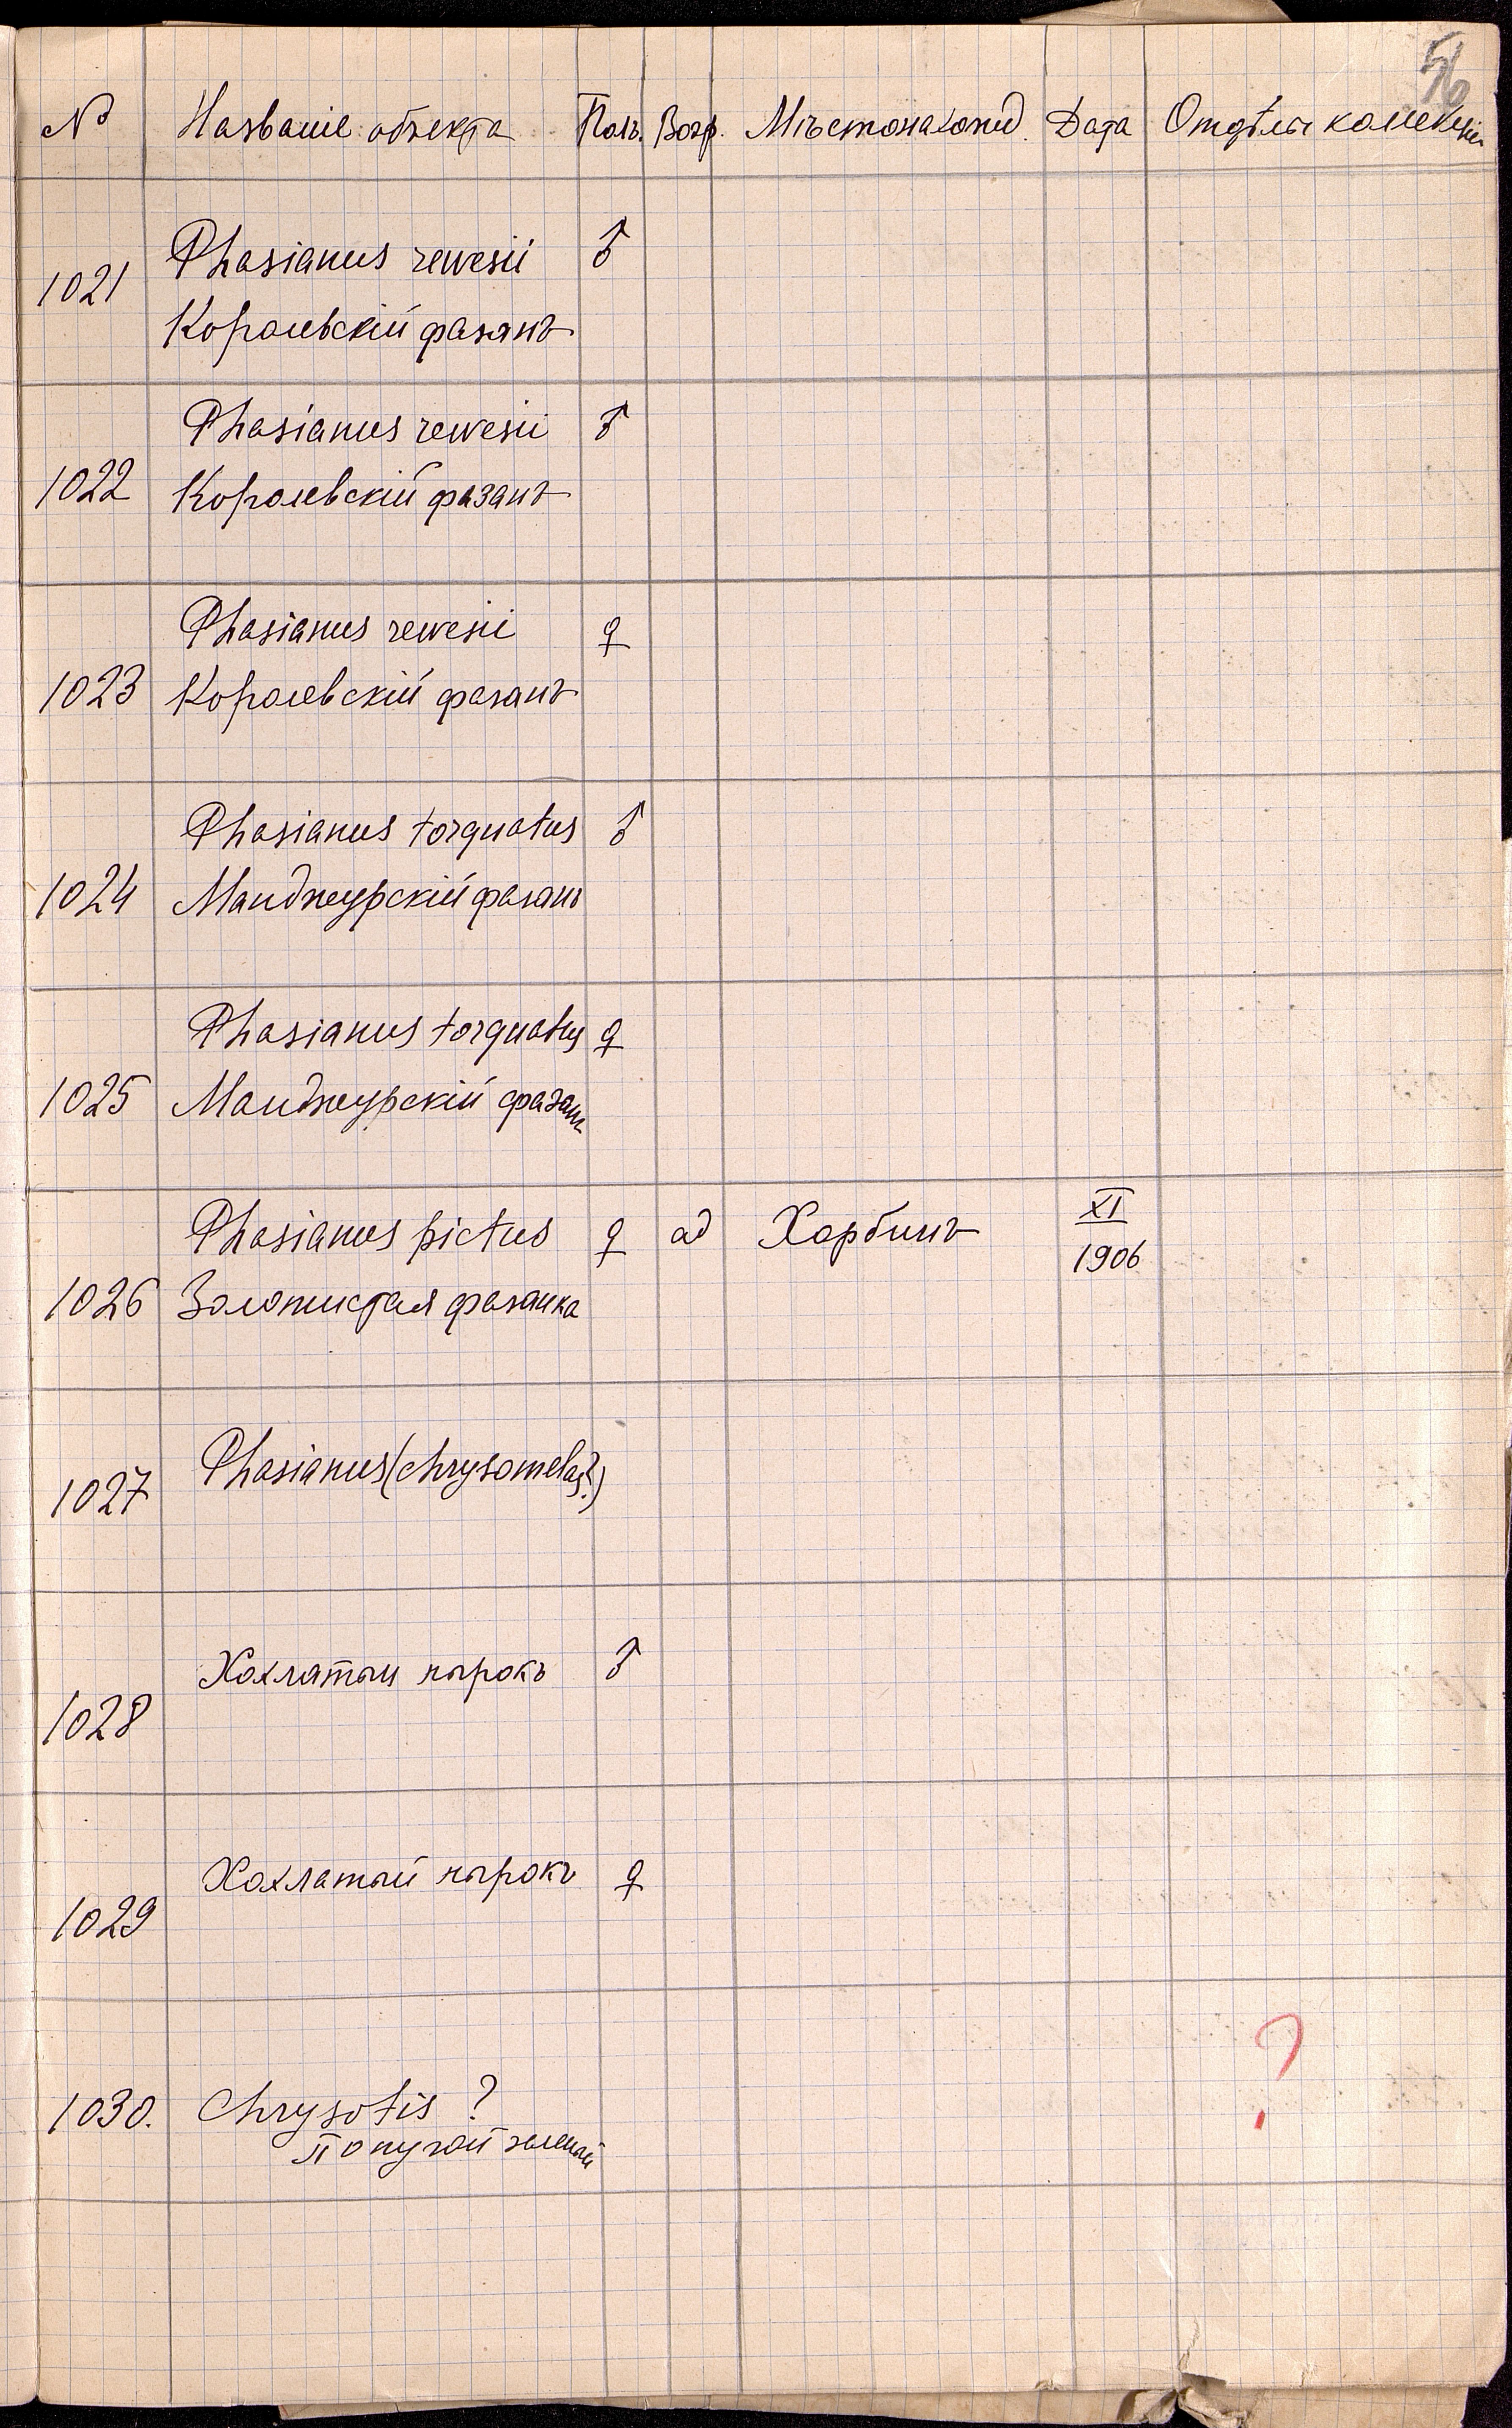 56
№ Названіе объекта Полъ. Возр. Мѣстонахожд. Дата Отдѣлы колекціи
Phasianus rewesii ♂
1021
Королевскій фазанъ
Phasianus rewesii ♂
1022 Королевскій фазанъ
Phasianus rewesii ♀
1023 Королевскій фазанъ
Phasianus torquatus ♂
1024 Манджурскій фазанъ
Phasianus torquatus ♀
1025 Манджурскій фазанъ
Phasianus pictus ♀ ad Харбинъ XI
1906
1026 Золотистая фазанка
Phasianus (chrysomelas?)
1027
Хохлатый нырокъ ♂
1028
Хохлатый нырокъ ♀
1029
?
1030. Chrysotis ?
Попугай зеленый